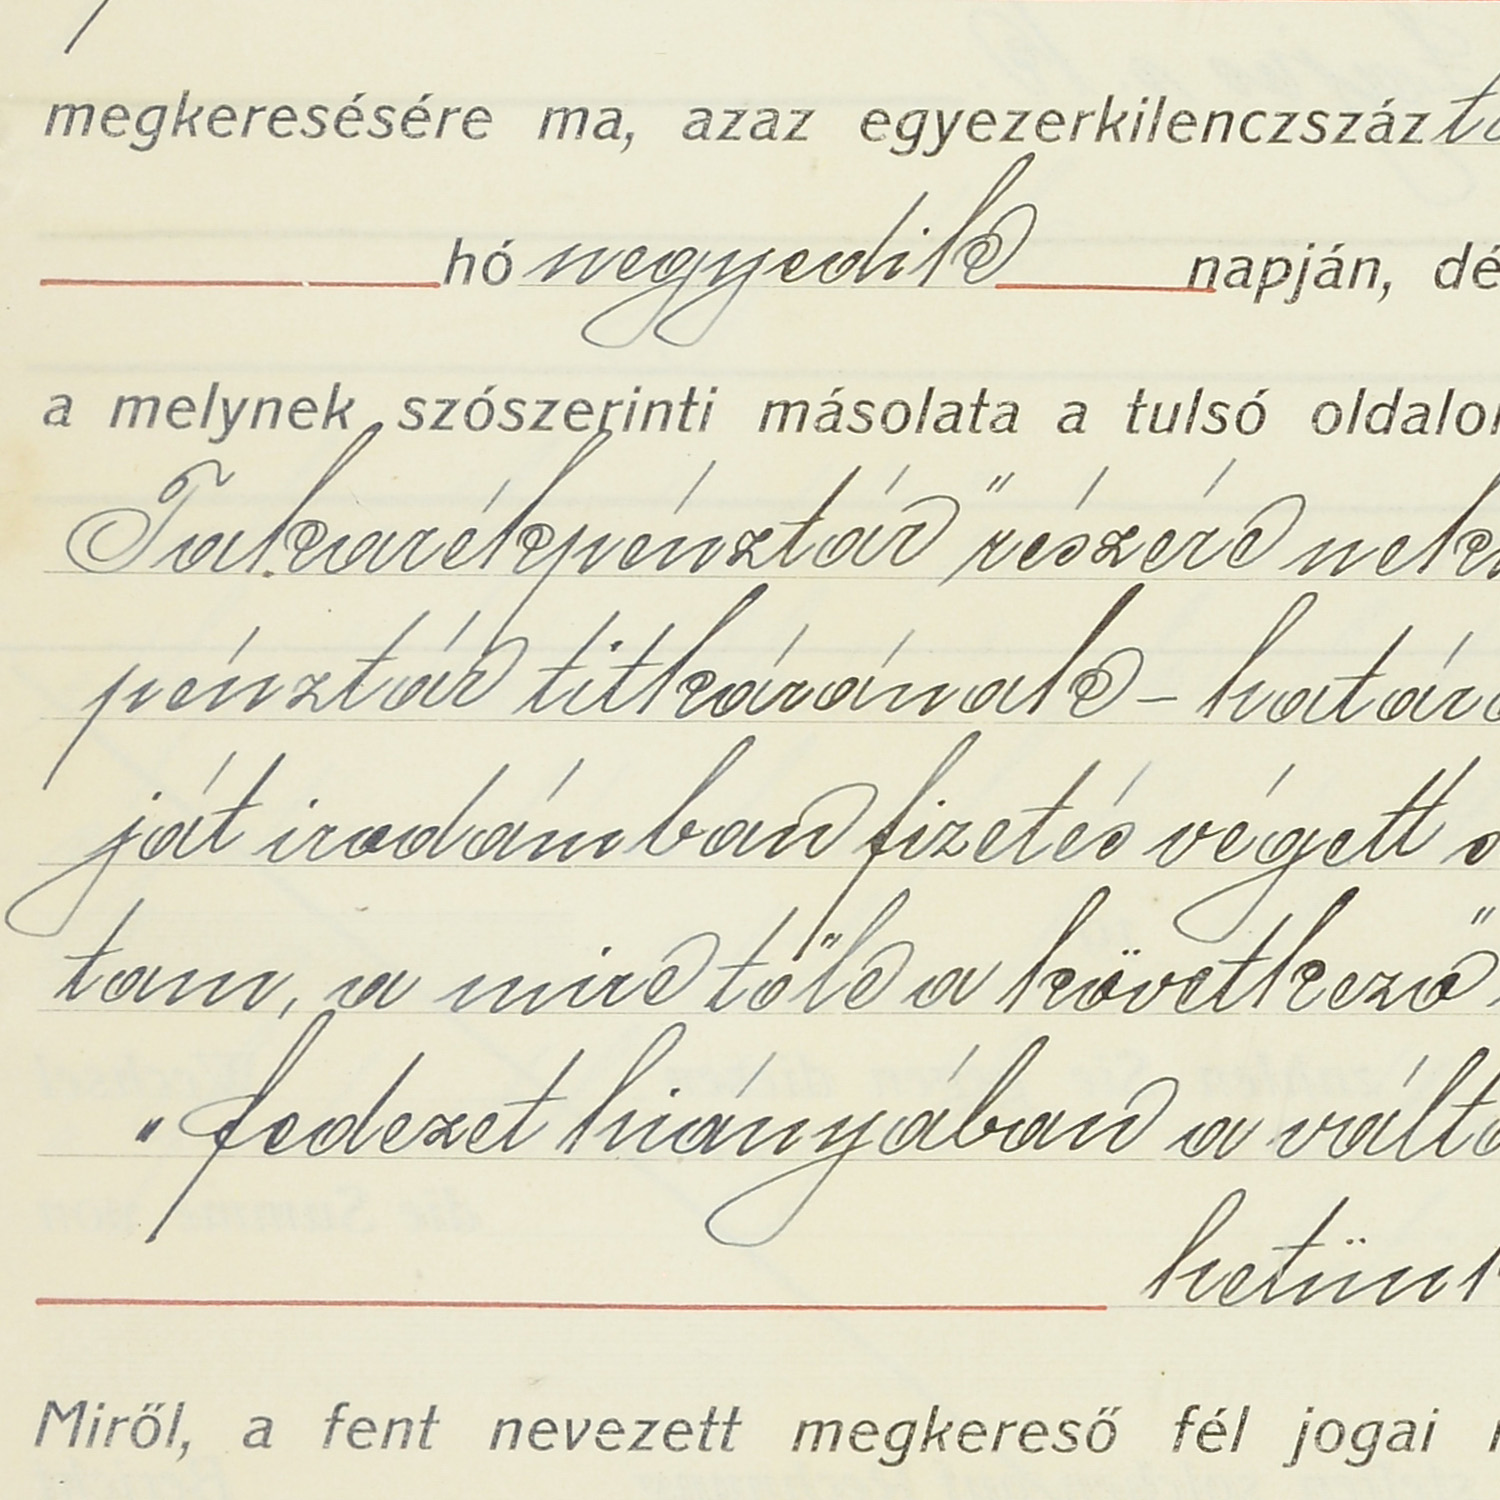 megkeresésére ma, azaz egyezerkilenczszáz
hó negyedik napján, dé
a melynek szószerinti másolata a tulsó oldalon
Takarékpénztár" részére nek
pénztár titkárának – határ
ját irodámban fizetés végett
tam, a mire tőle a következő
"fedezet hiányában a vált
hetünk
Miről, a fent nevezett megkereső fél jogai